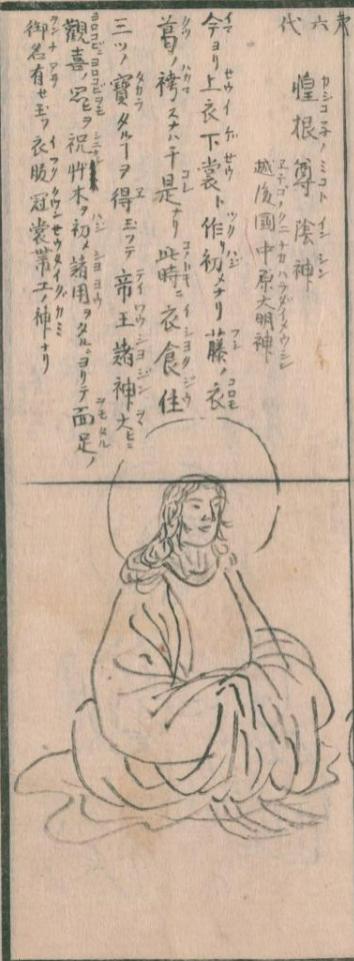 第六代
惶根尊陰神
越後國中原大明神
今ヨリ上衣下裳ト作リ初メナリ藤ノ衣
葛ノ袴スナハチ是ナリ此時ニ衣食住
三ツノ寶タルヿヲ得玉フテ帝王諸神大ヒニ
觀喜ノ祝艸木ヲ初メ諸用ヲタルニヨリテ面足ノ
御名有セ玉フ衣服冠裳帯工ノ神ナリ